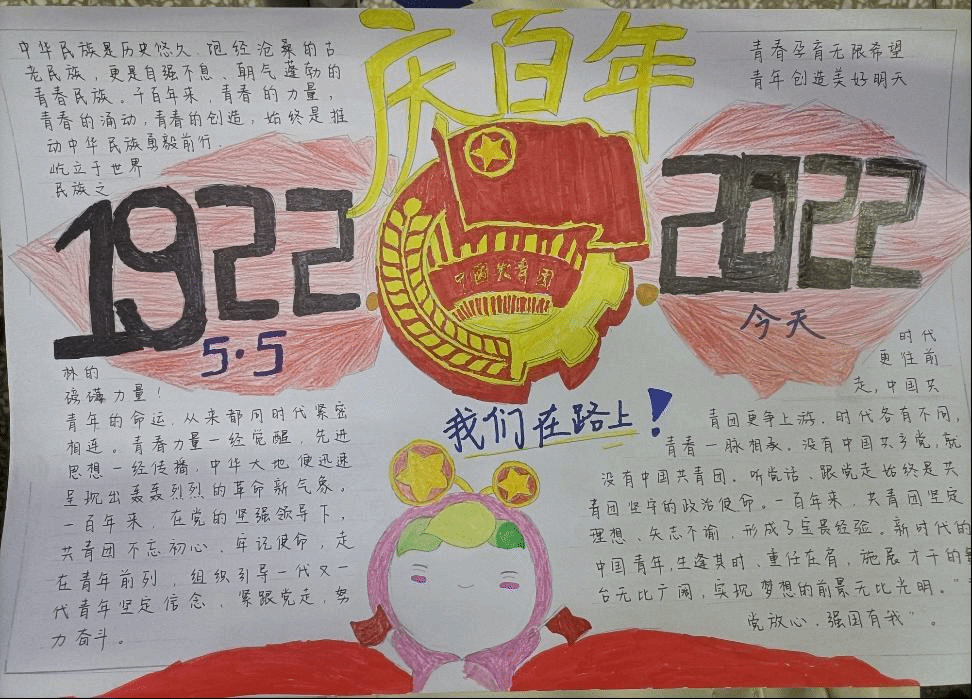 庆百年
中华民族是历史悠久、饱经沧桑的古
老民族，更是自强不息、朝气蓬勃的
青春民族。千百年来，青春的力量，
青春的涌动，青春的创造，始终是推
动中华民族勇毅前行、
屹立于世界
民族之
1922
5·5
林的
磅礴力量！
青年的命运，从来都同时代紧密
相连。青春力量一经觉醒，先进
思想一经传播，中华大地便迅速
呈现出轰轰烈烈的革命新气象。
一百年来，在党的坚强领导下，
共青团不忘初心、牢记使命，走
在青年前列，组织引导一代又一
代青年坚定信念、紧跟党走，努
力奋斗。
中国共青团
我们在路上！
青春孕育无限希望
青年创造美好明天
2022
今天
时代
更住前
走，中国共
青团更争上游。时代各有不同，
青春一脉相承。没有中国共产党，就
没有中国共青团。听党话、跟党走始终是共
青团坚守的政治使命。一百年来，共青团坚定
理想、矢志不渝，形成了宝贵经验。新时代的
中国青年，生逢其时、重任在肩，施展才干的舞
台无比广阔，实现梦想的前景无比光明。“
党放心、强国有我”。